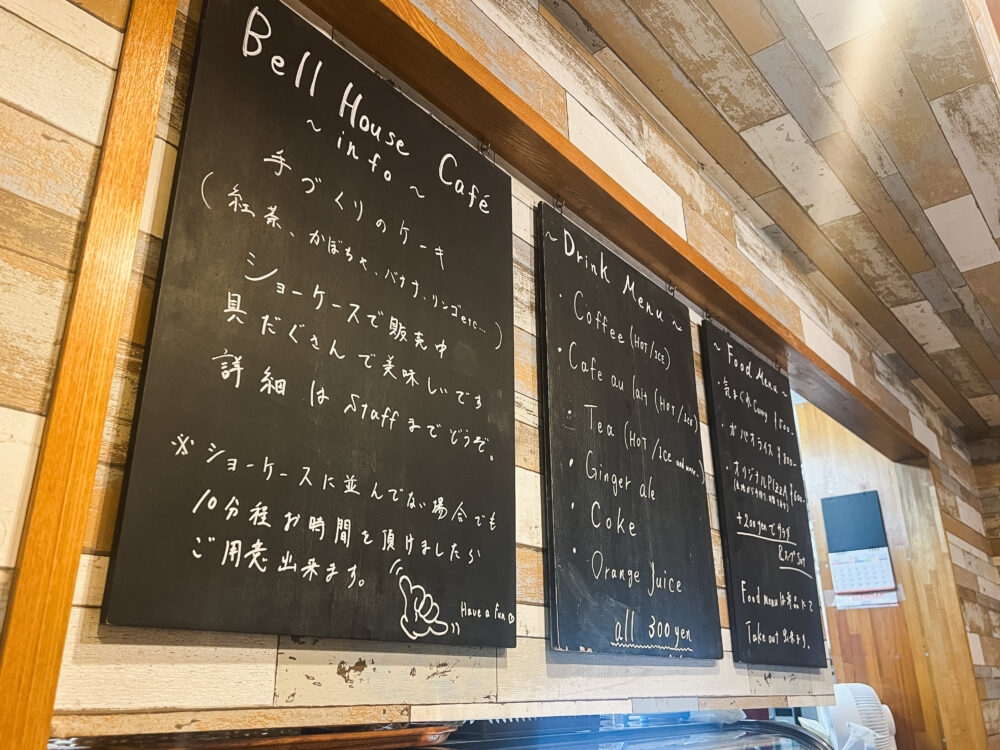 Bell House Café
~ info ~
手づくりのケーキ
(紅茶、かぼちゃ、バナナ、リンゴetc…)
ショーケースで販売中
具だくさんで美味しいです
詳細はStaffまでどうぞ。
※ショーケースに並んでない場合でも
10分程お時間を頂けましたら
ご用意出来ます。
Have a fun
~ Drink Menu ~
・Coffee (HOT/ICE)
・Cafe au lait (HOT/ICE)
・Tea (HOT/ICE and more...)
・Ginger ale
・Coke
・Orange Juice
all 300yen
~ Food Menu ~
・気まぐれCurry
・ガパオライス ¥800-
・オリジナルPIZZA ¥600-
+200yenで
Set
Food menuは全て
Take out 出来ます。